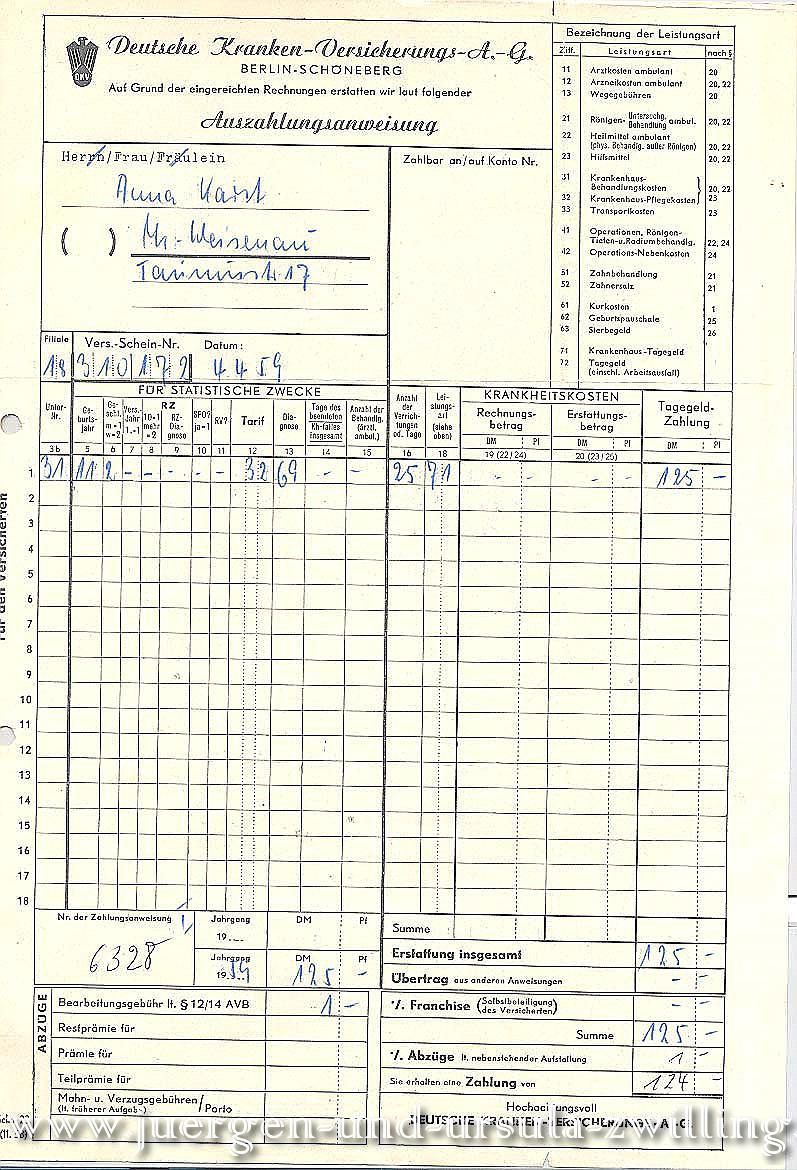 Deutsche Kranken-Versicherungs-A.-G.
BERLIN-SCHÖNEBERG
DKV
Auf Grund der eingereichten Rechnungen erstatten wir laut folgender
Auszahlungsanweisung
Herrn/Frau/Fräulein
Anna Karst
( ) Mz.-Weisenau
Taunusstr 17
Zahlbar an/auf Konto Nr.
Bezeichnung der Leistungsart
Ziff. Leistungsart nach §
11 Arztkosten ambulant 20
12 Arzneikosten ambulant 20, 22
13 Wegegebühren 20
21 Röntgen- Untersuchg. Behandlung ambul. 20, 22
22 Heilmittel ambulant
(phys. Behandlg. außer Röntgen) 20, 22
23 Hilfsmittel 20, 22
31 Krankenhaus-
Behandlungskosten 20, 22
32 Krankenhaus-Pflegekosten 23
33 Transportkosten 23
41 Operationen, Röntgen-
Tiefen-u.Radiumbehandlg. 22, 24
42 Operations-Nebenkosten 24
51 Zahnbehandlung 21
52 Zahnersatz 21
61 Kurkosten 1
62 Geburtspauschale 25
63 Sterbegeld 26
71 Krankenhaus-Tagegeld
72 Tagegeld
(einschl. Arbeitsausfall)
Filiale Vers.-Schein-Nr. Datum:
18 310172 4 4 59
FÜR STATISTISCHE ZWECKE
KRANKHEITSKOSTEN
Unter-Nr.
Geburtsjahr
Geschl. m=1 w=2
Vers. Jahr 1.=1
RZ
10=1 mehr =2
RZ-Diagnose
SFO? ja=1
RV?
Tarif
Diagnose
Tage des beendeten Kh-falles insgesamt
Anzahl der Behandlg. (ärztl. ambul.)
Anzahl der Verrichtungen od. Tage
Leistungsart (siehe oben)
Rechnungsbetrag
Erstattungsbetrag
Tagegeld-Zahlung
DM Pf DM Pf DM Pf
3b 5 6 7 8 9 10 11 12 13 14 15 16 18 19 (22/24) 20 (23/25)
1 31 11 2 - - - - - 32 69 - - 25 71 - - - - 125 -
2
3
4
5
6
7
8
9
10
11
12
13
14
15
16
17
18
Für den Versicherten
Nr. der Zahlungsanweisung
6328
Jahrgang DM Pf
19
Jahrgang DM Pf
1959 125 -
Summe
Erstattung insgesamt 125 -
Übertrag aus anderen Anweisungen - -
ABZÜGE
Bearbeitungsgebühr lt. § 12/14 AVB 1 -
Restprämie für
Prämie für
Teilprämie für
Mahn- u. Verzugsgebühren / Porto
(lt. früherer Aufgabe)
·/. Franchise (Selbstbeteiligung des Versicherten) - -
Summe 125 -
·/. Abzüge lt. nebenstehender Aufstellung 1 -
Sie erhalten eine Zahlung von 124 -
Hochachtungsvoll
DEUTSCHE KRANKEN-VERSICHERUNGS-A.-G.
www.juergen-und-ursula-zwilling